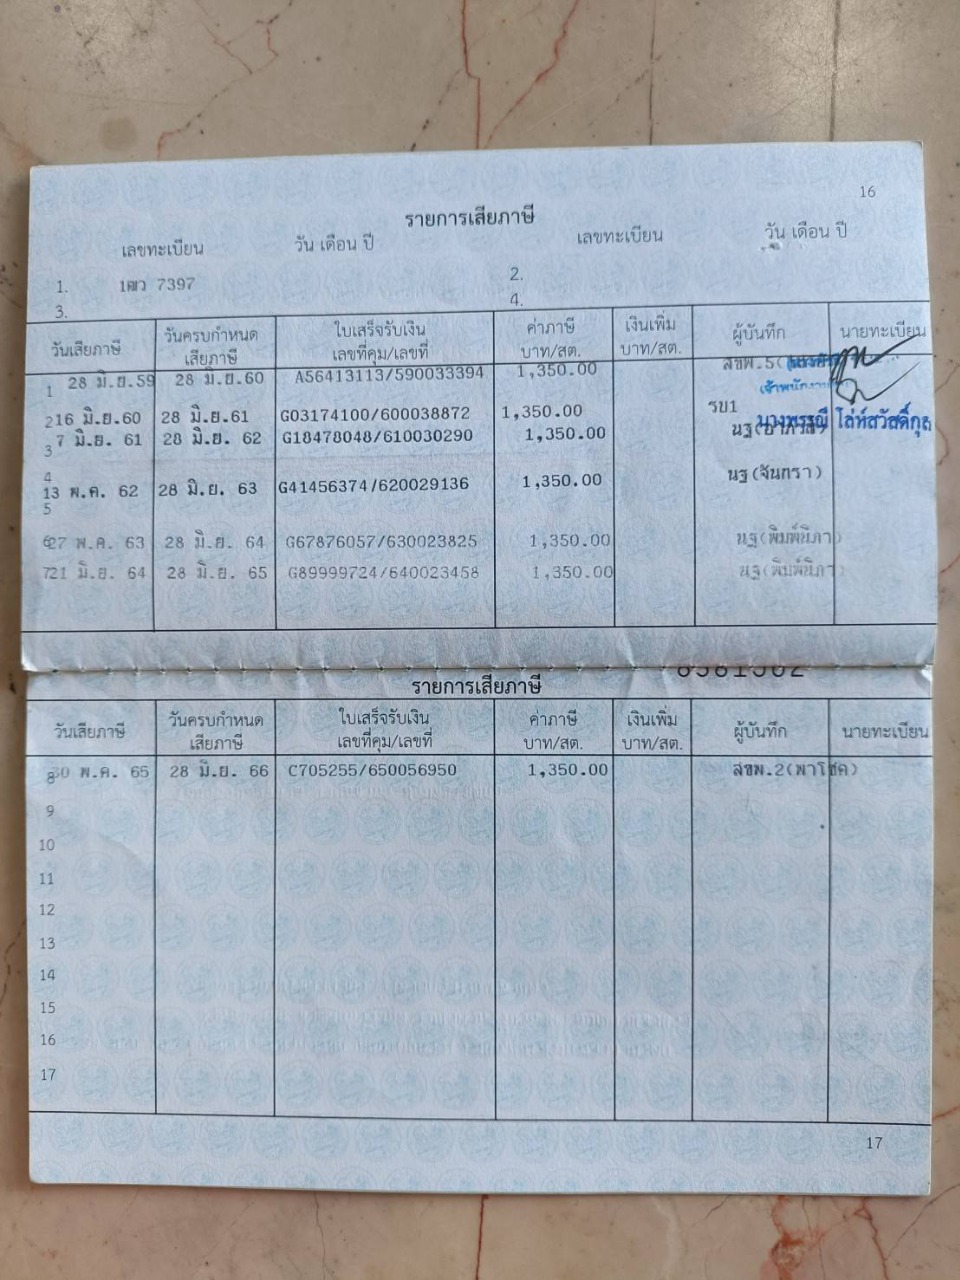 16
รายการเสียภาษี
เลขทะเบียน วัน เดือน ปี เลขทะเบียน วัน เดือน ปี
1. 1ฒว 7397 2.
3. 4.
วันเสียภาษี วันครบกำหนดเสียภาษี ใบเสร็จรับเงิน เลขที่คุม/เลขที่ ค่าภาษี บาท/สต. เงินเพิ่ม บาท/สต. ผู้บันทึก นายทะเบียน
1 28 มิ.ย.59 28 มิ.ย.60 A56413113/590033394 1,350.00 สขพ.5(
(เจ้าพนักงาน
2 16 มิ.ย.60 28 มิ.ย.61 G03174100/600038872 1,350.00 รบ1
นางพรรณี โล่ห์สวัสดิ์กุล
3 7 มิ.ย. 61 28 มิ.ย. 62 G18478048/610030290 1,350.00 นฐ
4
13 พ.ค. 62 28 มิ.ย. 63 G41456374/620029136 1,350.00 นฐ(จันทรา)
5
6 27 พ.ค. 63 28 มิ.ย. 64 G67876057/630023825 1,350.00 นฐ(พิมพ์นิภา)
7 21 มิ.ย. 64 28 มิ.ย. 65 G89999724/640023458 1,350.00 นฐ(พิมพ์นิภา)
8581502
รายการเสียภาษี
วันเสียภาษี วันครบกำหนดเสียภาษี ใบเสร็จรับเงิน เลขที่คุม/เลขที่ ค่าภาษี บาท/สต. เงินเพิ่ม บาท/สต. ผู้บันทึก นายทะเบียน
8 30 พ.ค. 65 28 มิ.ย. 66 C705255/650056950 1,350.00 สขพ.2(พาโชค)
9
10
11
12
13
14
15
16
17
17